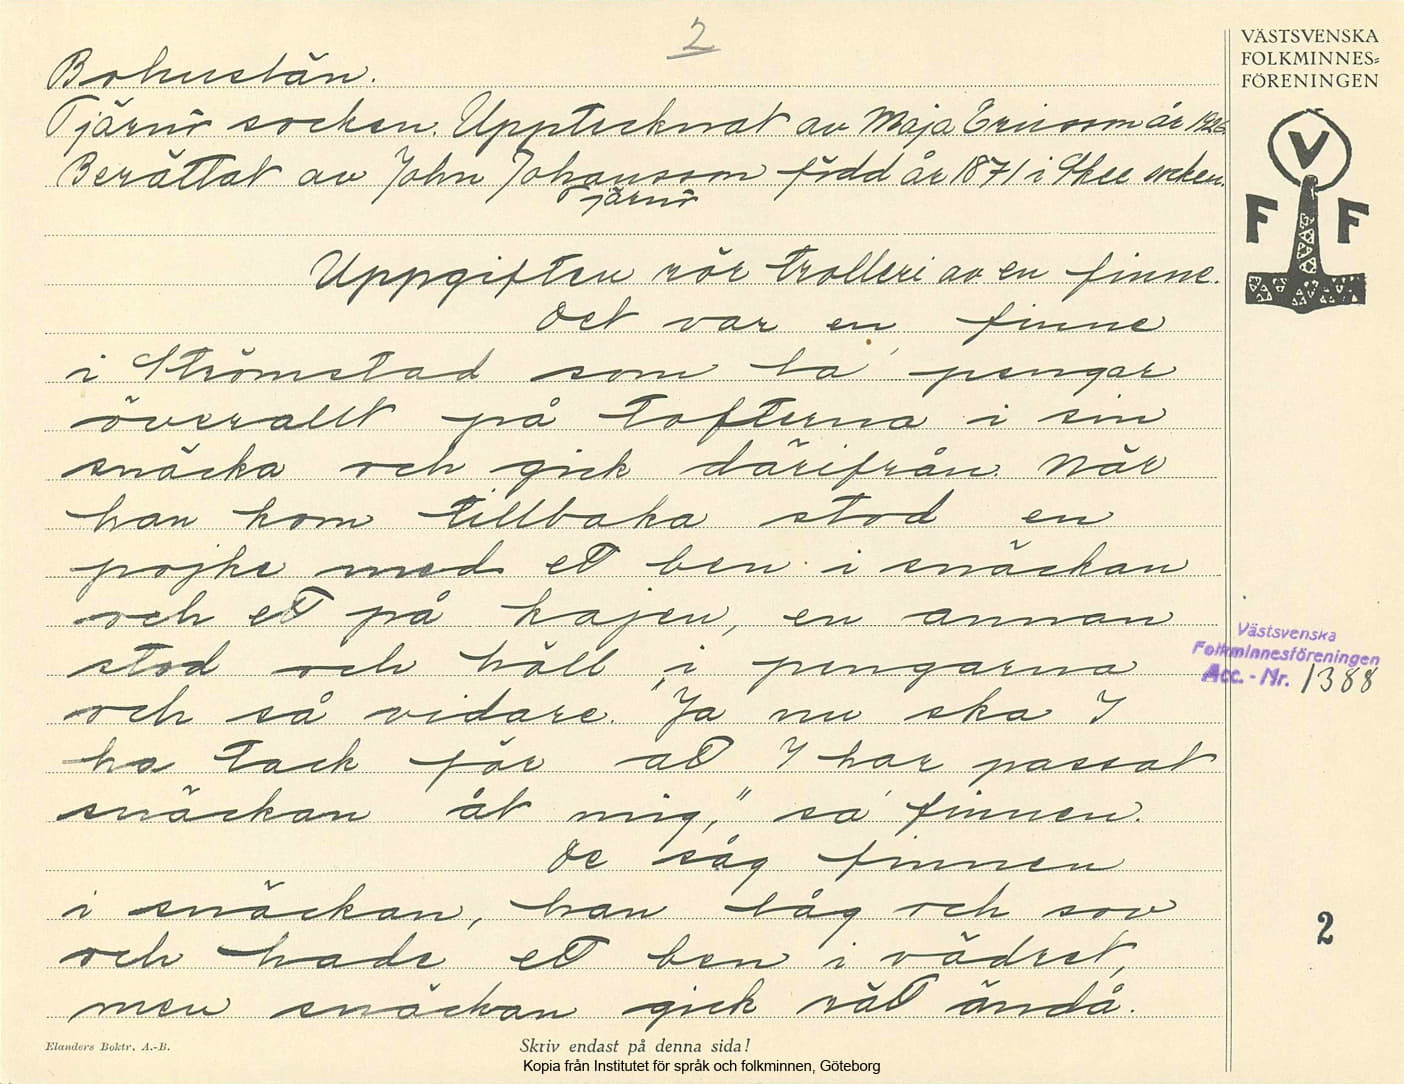 2
VÄSTSVENSKA
FOLKMINNES=
FÖRENINGEN
V
F F
Bohuslän.
Tjärnö socken. Upptecknat av Maja Ericsson år 1926.
Berättat av John Johansson född år 1871 i Skee socken.
Tjärnö
Uppgiften rör trolleri av en finne.
Det var en finne
i Strömstad som la pengar
överallt på tofterna i sin
snäcka och gick därifrån. När
han kom tillbaka stod en
pojke med ett ben i snäckan
och ett på kajen, en annan
stod och höll i pengarna
och så vidare. "Ja nu ska I
ha tack för att I har passat
snäckan åt mig," sa finnen.
De såg finnen
i snäckan, han låg och sov
och hade ett ben i vädret,
men snäckan gick rätt ändå.
Västsvenska
Folkminnesföreningen
Acc.-Nr. 1388
2
Elanders Boktr. A.-B.
Skriv endast på denna sida!
Kopia från Institutet för språk och folkminnen, Göteborg